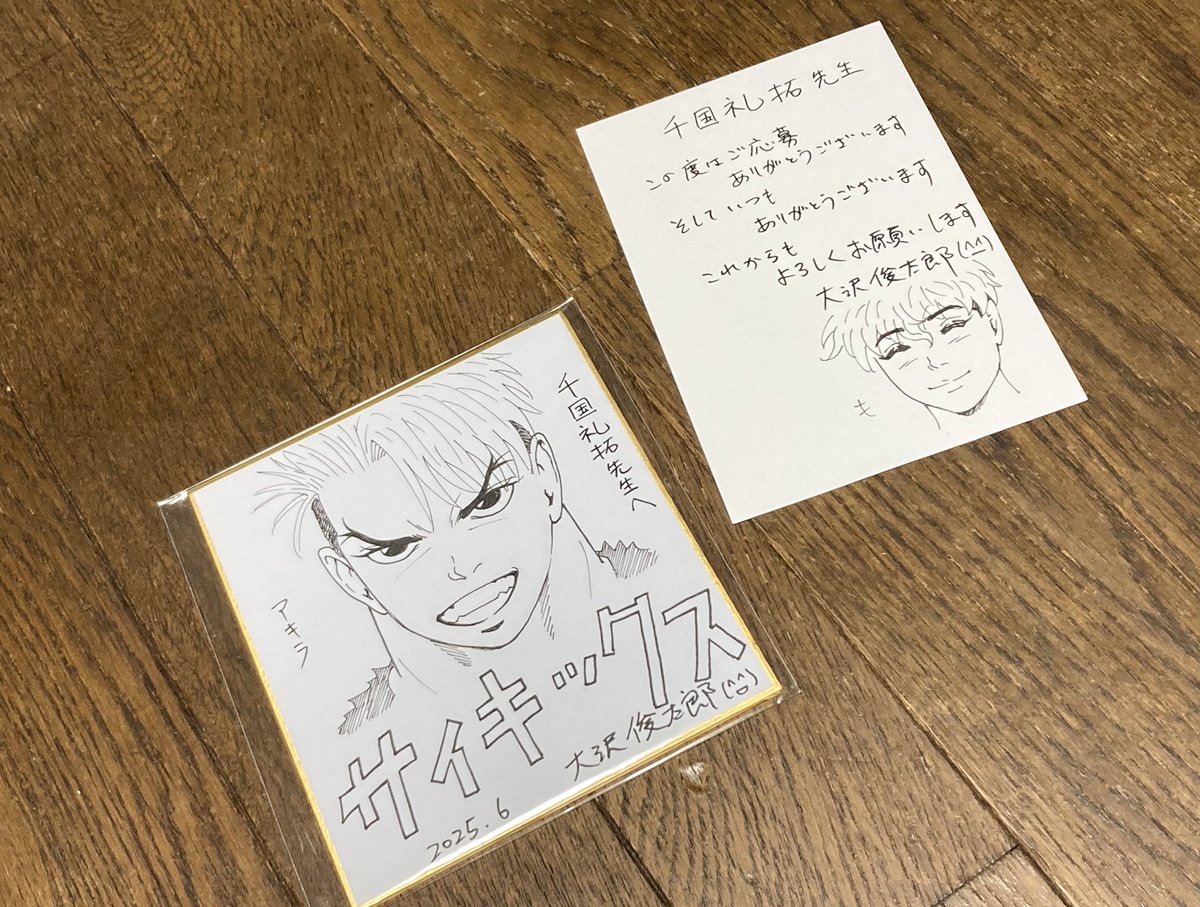 千国礼拓先生
この度はご応募
ありがとうございます
そしていつも
ありがとうございます
これからも
よろしくお願いします
大沢俊太郎(^^)
も
千国礼拓先生へ
アキラ
サイキックス
大沢俊太郎(^^)
2025.6